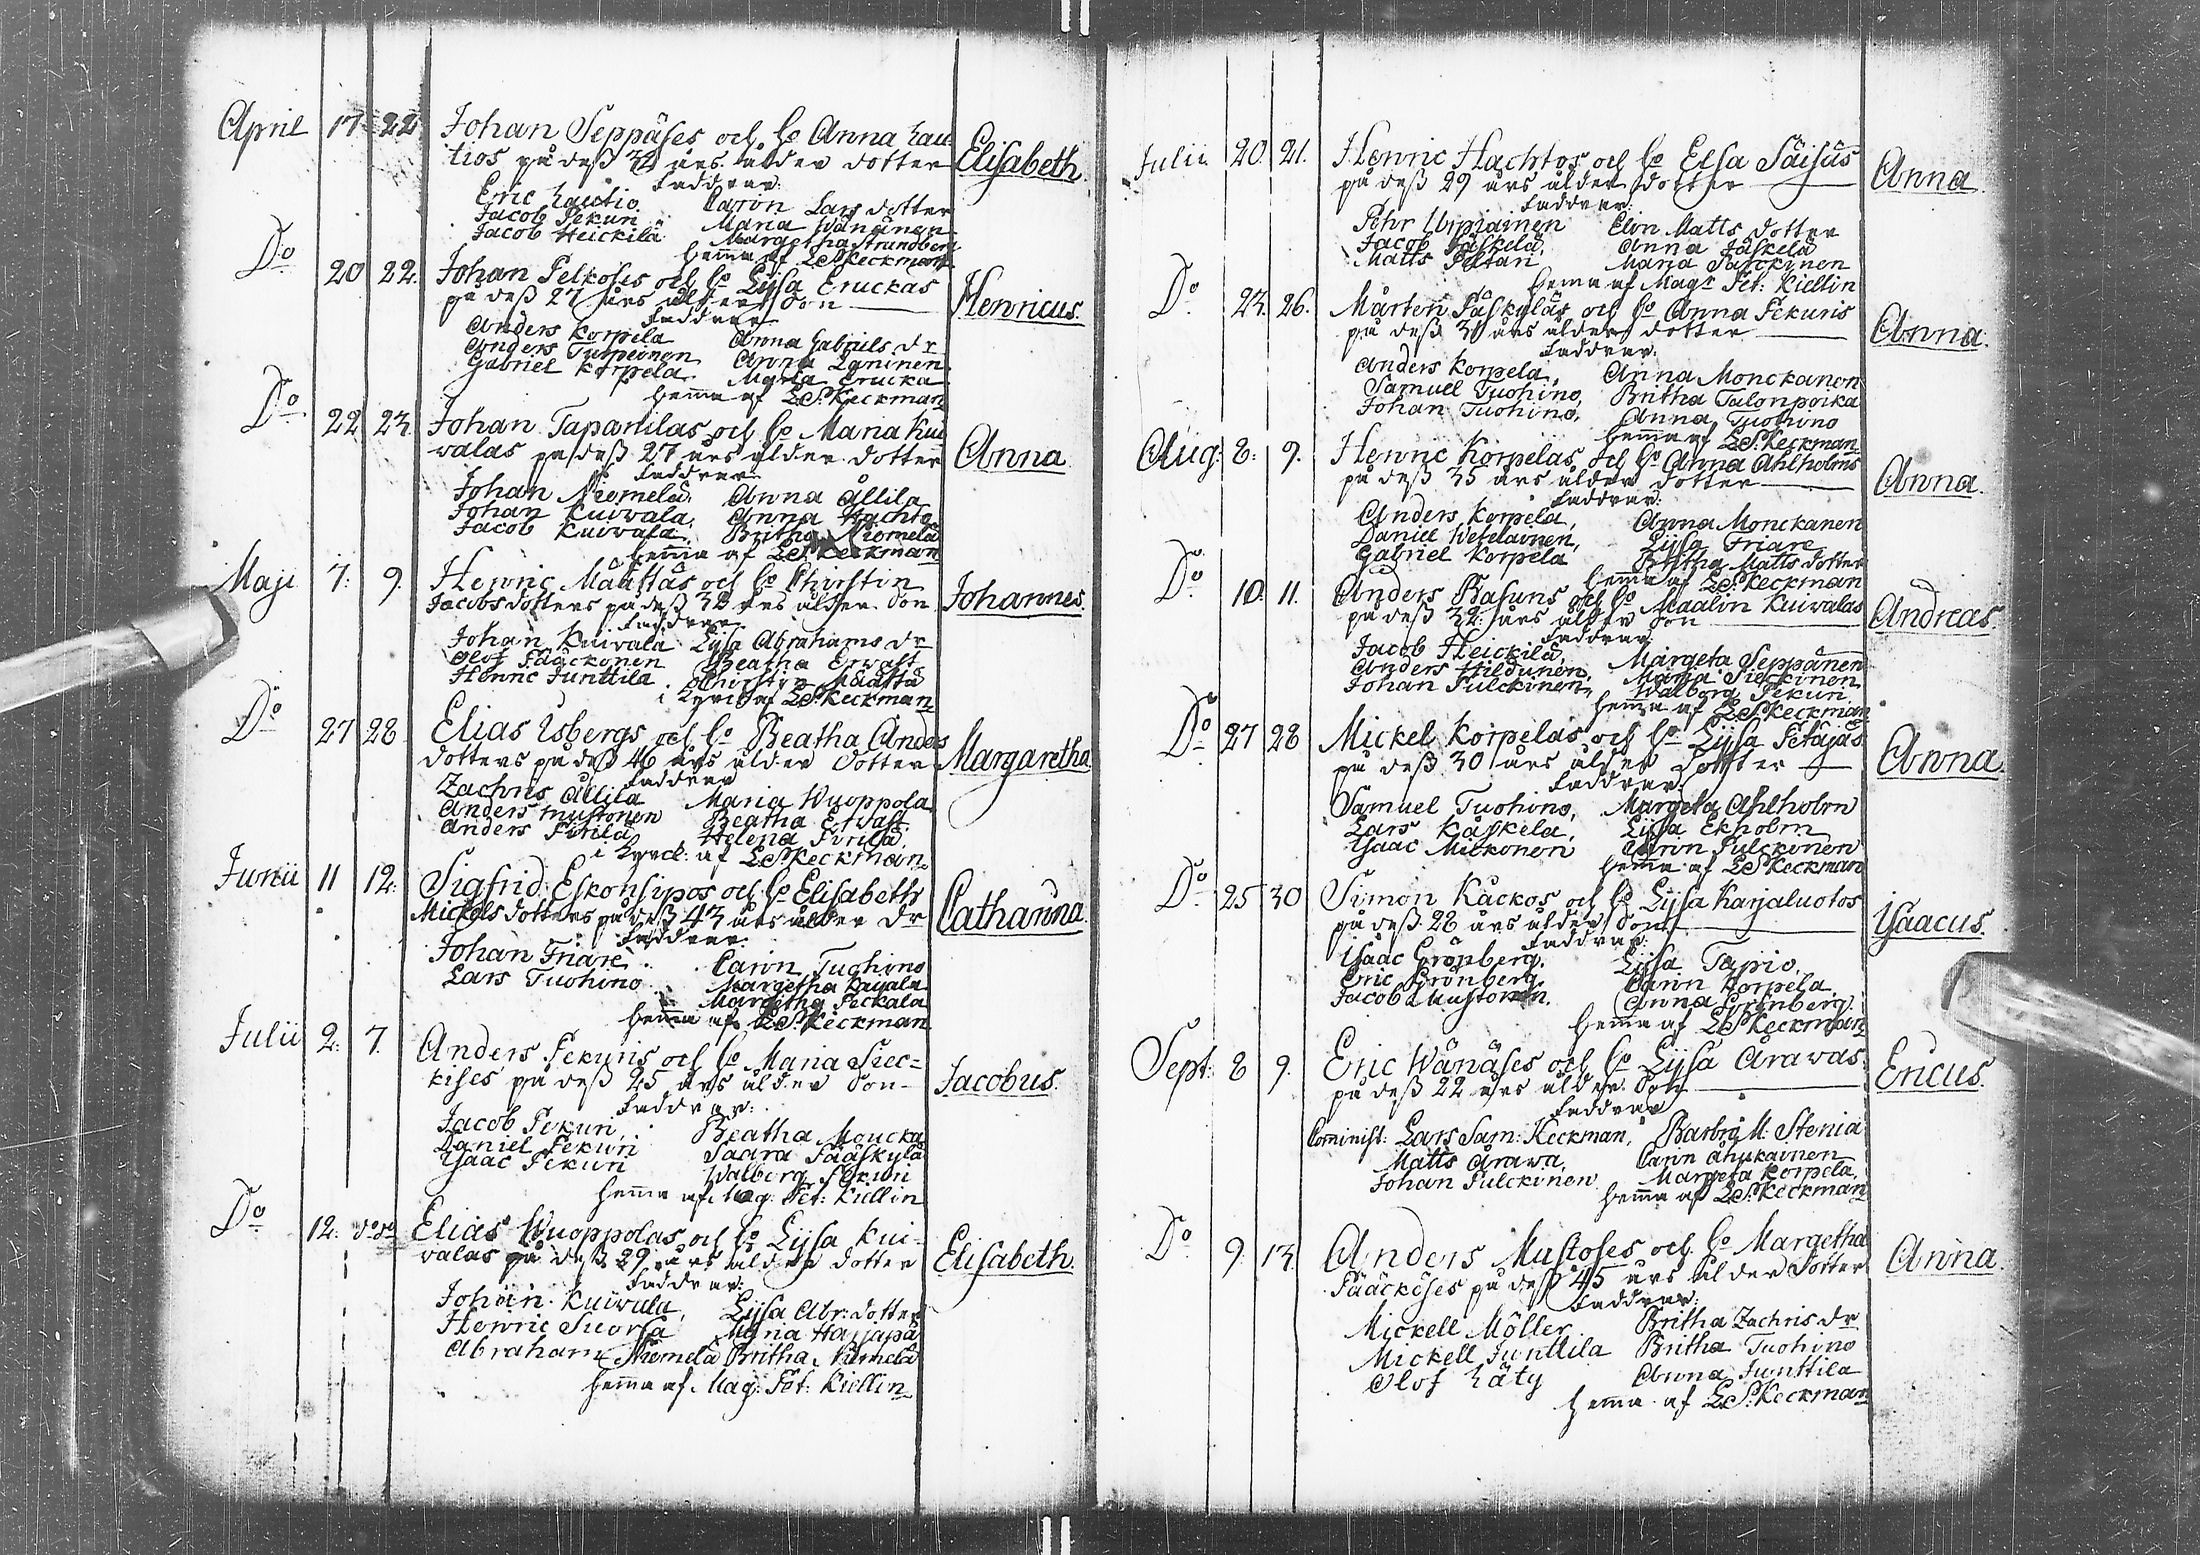 April 17 22 Johan Seppäses och ho Anna Lau
tios på deß 32 års ålder dotter Elisabeth
Faddrar:
Eric Lautio Carin Lars dotter
Jacob Pekuri Maria Wänänen
Jacob Heickilä Margetha Strandberg
hema af LSKeckman
Do 20 22. Johan Pelkoses och ho Lijsa Eruckas
på deß 27 års ålder Son Henricus.
Faddrar
Anders Korpela Anna Gabriels dr
Anders Turpeinen Anna Laninen
Gabriel Korpela Maria Erucka
hema af LSKeckman
Do 22 23 Johan Tapanilas och ho Maria Kui
walas på deß 27 års ålder dotter Anna
Faddrar
Johan Niemelä Anna Allila
Johan Kuiwala, Anna Hachto
Jacob Kuiwala, Britha Niemelä
hema af LSKeckman
Maji 7: 9. Henric Määttäs och ho Christin
Jacobsdotters på deß 32 års ålder Son Johannes.
Faddrar
Johan Kuiwala Lijsa Abrahams dr
Olof Pääckönen Beatha Erwast
Henric Junttila Christin Määttä
i kyrck af LSKeckman
Do 27 28 Elias Usbergs och ho Beatha Anders
dotters på deß 46 års ålder Dotter Margaretha
Faddrar
Zachris Allila Maria Wuoppola
Anders Mustonen Beatha Erwast
Anders Pirilä Helena Pirilä
i kyrck: af LSKeckman
Junii 11 12. Sigfrid Eskonsipos och ho Elisabeth
Mickels dotters på deß 43 års ålder dr Catharina.
Faddrar.
Johan Friare Carin Tuohino
Lars Tuohino Margetha Rajala
Margetha Peckala
hema af LSKeckman
Julii 2: 7. Anders Pekuris och ho Maria Siec=
kises på deß 25 års ålder Son Jacobus.
Faddrar:
Jacob Pekuri, Beatha Moucka
Daniel Pekuri Saara Pääskylä
Ysaac Pekuri Walborg Pekuri
hema af Mag: Pet: Kiellin
Do 12. Elias Wuoppolas och ho Lijsa Kui-
walas på deß 29 års ålder dotter Elisabeth.
Faddrar:
Johan Kuiwala, Lijsa Abr: dotter
Henric Suorsa Maria Harjapä
Abraham Niemelä Britha Niemelä
hema af Mag: Pet: Kiellin
Julii 20. 21. Henric Hachtos och ho Elsa Säisäs
på deß 29 års ålder dotter Anna
Faddrar:
Pehr Urpiainen Elin Matts dotter
Jacob Jäskelä, Anna Jäskelä
Matts Peltari Maria Parckinen
hema af Magr Pet: Kiellin
Do 23. 26. Mårten Pääskyläs och ho Anna Pekuris
på deß 30 års ålder dotter Anna.
Faddrar:
Anders Korpela, Anna Monckanen
Samuel Tuohino, Britha Talonpoika
Johan Tuohino, Anna Tuohino
hema af LSKeckman
Aug: 8: 9. Henric Korpelas och ho Anna Ahlholms
på deß 35 års ålder dotter Anna.
Faddrar:
Anders Korpela, Anna Monckanen
Daniel Wetelainen, Lijsa Friare
Gabriel Korpela Britha Matts dotter
hema af LSKeckman
Do 10. 11. Anders Pasuns och ho Maalin Kuiwalas
på deß 32: års ålder Son Andreas.
Faddrar
Jacob Heickilä, Margeta Seppänen
Anders Hildunen, Maria Sieckinen
Johan Pulckinen, Walborg Pekuri
hema af LSKeckman
Do 27 28 Mickel Korpelas och ho Lijsa Petäjäs
på deß 30 års ålder Dotter Anna.
Faddrar:
Samuel Tuohino, Margeta Ahlholm
Lars Käskelä, Lijsa Ekholm
Ysaac Mickonen Carin Pulckinen
hema af LSKeckman
Do 25 30 Simon Kackos och ho Lijsa Karjaluotos
på deß 28 års ålder Son Ysaacus.
Faddrar:
Ysaac Grönberg. Lijsa Tapio,
Eric Grönberg. Carin Korpela
Jacob Mustonen. Anna Grönberg.
hema af LSKeckman
Sept: 8 9. Eric Wänäses och ho Lijsa Arawas
på deß 22 års ålder Son Ericus.
Faddrar
Cominist: Lars Sam: Keckman, Barbra M: Stenia
Matts Arawa, Carin Ahukainen
Johan Pulckinen Margeta Korpela,
hema af LSKeckman
Do 9. 13. Anders Mustoses och ho Margetha
Pääcköses på deß 45 års ålder Dotter Anna.
Faddrar:
Mickell Möller Britha Zachris dr
Mickell Junttila Britha Tuohino
Olof Räty Anna Junttila
hema af LSKeckman